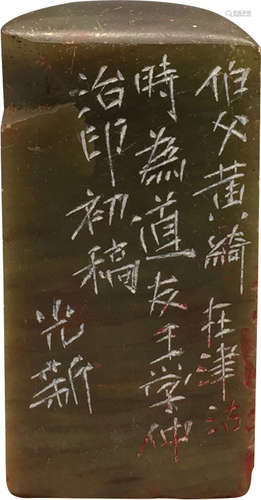 伯父黄绮在津沽
時為道友王学仲
治印初稿
光新